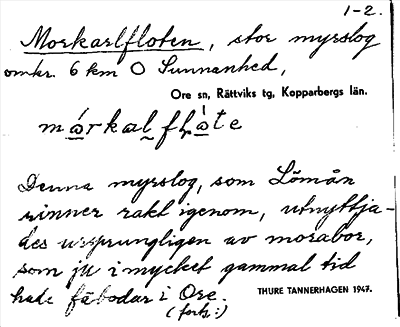 1-2.
Morkarlfloten, stor myrslog
omkr. 6 km O Sunnanhed,
Ore sn, Rättviks tg, Kopparbergs län.
mɷrkalflɷ́te
Denna myrslog, som Lömån
rinner rakt igenom, utnyttja-
des ursprungligen av morabor,
som ju i mycket gammal tid
hade fäbodar i Ore.
THURE TANNERHAGEN 1947.
(forts:)